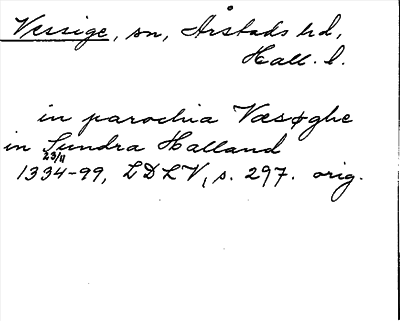 Vessige, sn, Årstads hd,
Hall. l.
in parochia Væsøghe
in Sundra Halland
23/11
1334-99, LDLV, s. 297. orig.